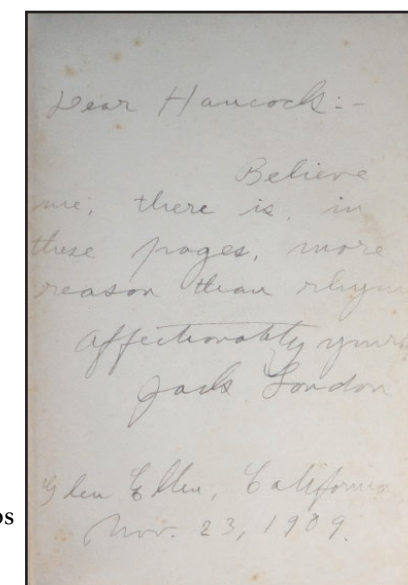 Dear Hancock:-
Believe
me, there is, in
these pages, more
reason than rhym
Affectionately yours
Jack London
Glen Ellen, California
Nov. 23, 1909.
os